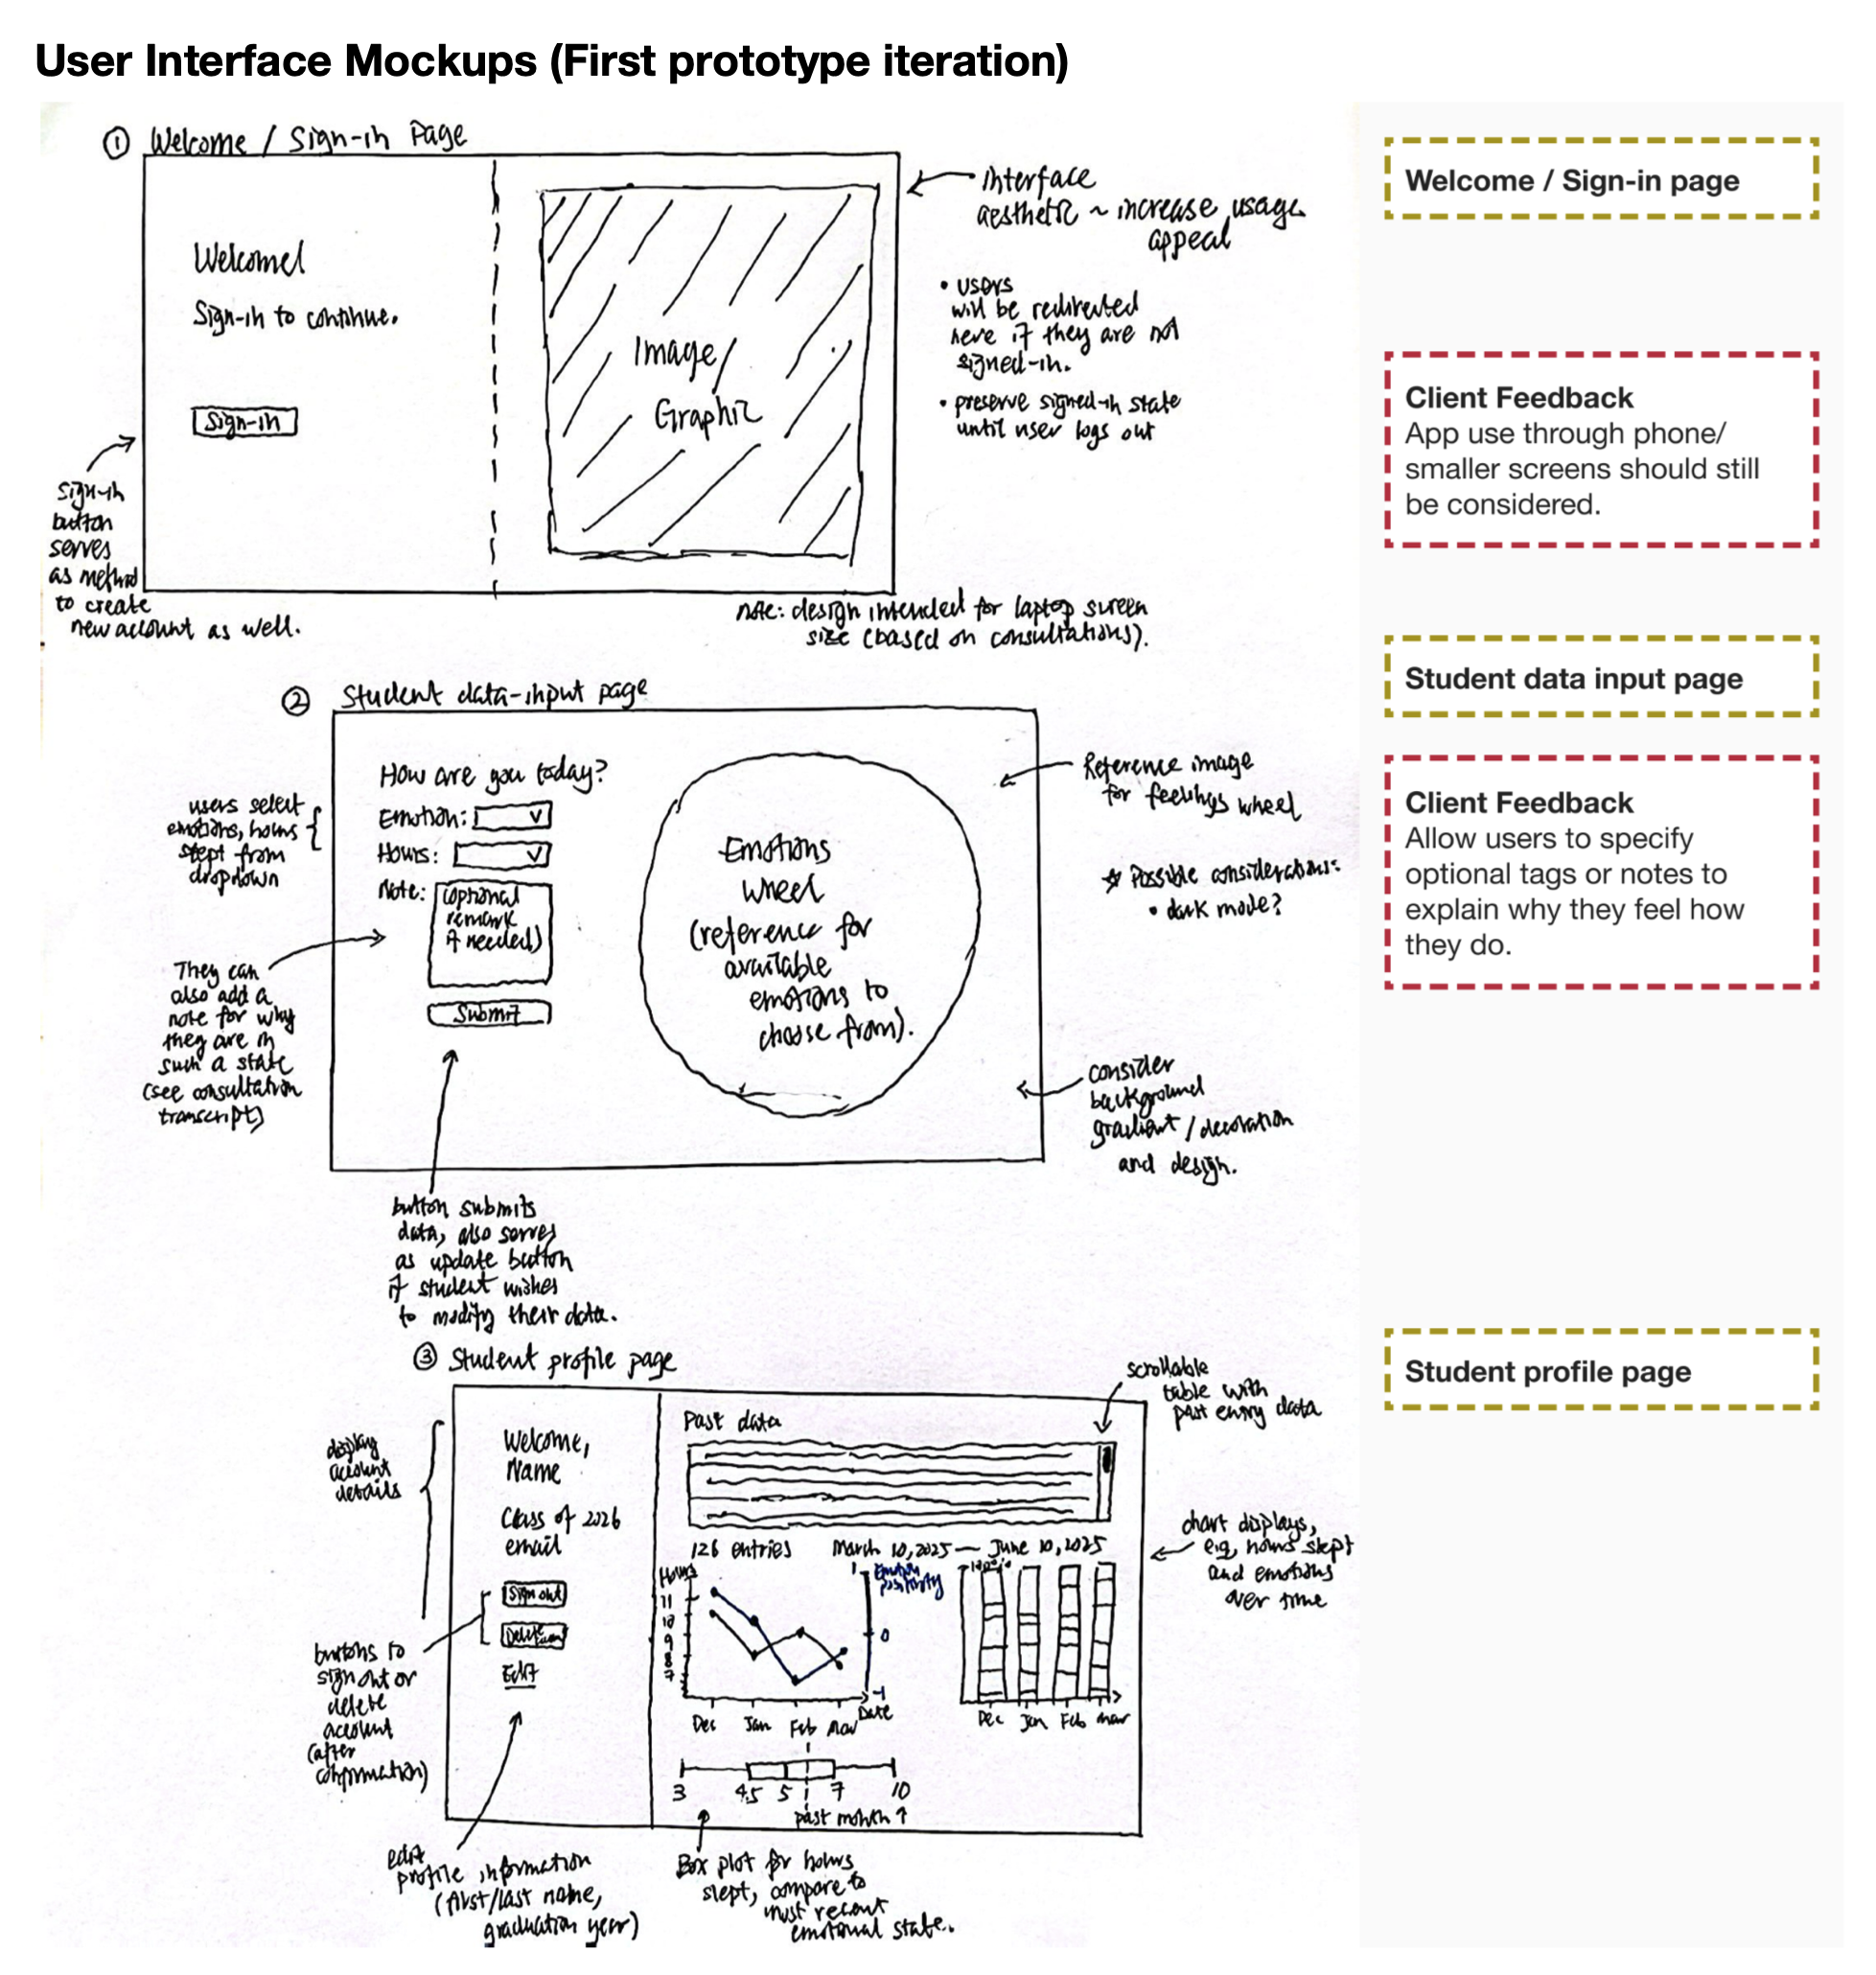 User Interface Mockups (First prototype iteration)
① Welcome / Sign-in Page
Welcome!
Sign-in to continue.
Sign-in
Image/
Graphic
interface
aesthetic ~ increase usage
appeal
• users
will be redirected
here if they are not
signed-in.
• preserve signed-in state
until user logs out
sign-in
button
serves
as method
to create
new account as well.
note: design intended for laptop screen
size (based on consultations).
Welcome / Sign-in page
Client Feedback
App use through phone/
smaller screens should still
be considered.
② Student data-input page
How are you today?
Emotion:
Hours:
Note: (optional
remark
if needed)
Submit
Emotions
wheel
(reference for
available
emotions to
choose from).
users select
emotions, hours
slept from
dropdown
They can
also add a
note for why
they are in
such a state
(see consultation
transcript)
Reference image
for feelings wheel
☆ Possible considerations:
• dark mode?
consider
background
gradient / decoration
and design.
button submits
data, also serves
as update button
if student wishes
to modify their data.
Student data input page
Client Feedback
Allow users to specify
optional tags or notes to
explain why they feel how
they do.
③ Student profile page
Welcome,
Name
Class of 2026
email
Sign out
Delete
Edit
display
account
details
buttons to
sign out or
delete
account
(after
confirmation)
edit
profile information
(first/last name,
graduation year)
Past data
126 entries March 10, 2025 — June 10, 2025
Hours
11
10
9
8
7
1
Emotion
positivity
0
-1
Dec Jan Feb Mar Date
100%
Dec Jan Feb Mar
3 4.5 5 7 10
past month ↑
Box plot for hours
slept, compare to
most recent
emotional state.
scrollable
table with
past entry data
chart displays,
e.g, hours slept
and emotions
over time
Student profile page